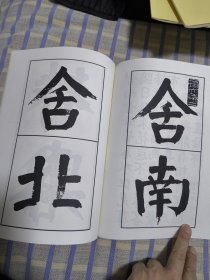 舍南
舍北